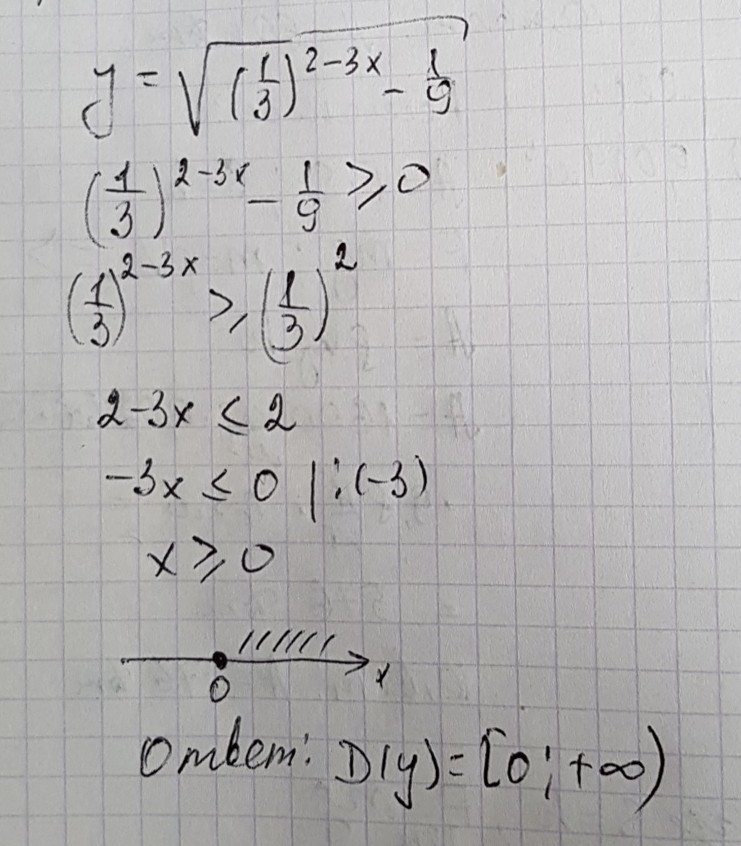 y = √((1/3)^(2-3x) - 1/9)
(1/3)^(2-3x) - 1/9 ⩾ 0
(1/3)^(2-3x) ⩾ (1/3)^2
2-3x ≤ 2
-3x ≤ 0 | : (-3)
x ⩾ 0
0 x
Ответ: D(y) = [0; +∞)